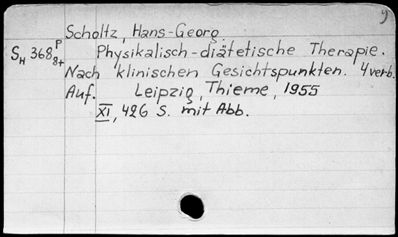 Scholtz, Hans-Georg
SH 368 P 8+ Physikalisch-diätetische Therapie.
Nach klinischen Gesichtspunkten. 4 verb.
Auf. Leipzig, Thieme, 1955
XI, 426 S. mit Abb.